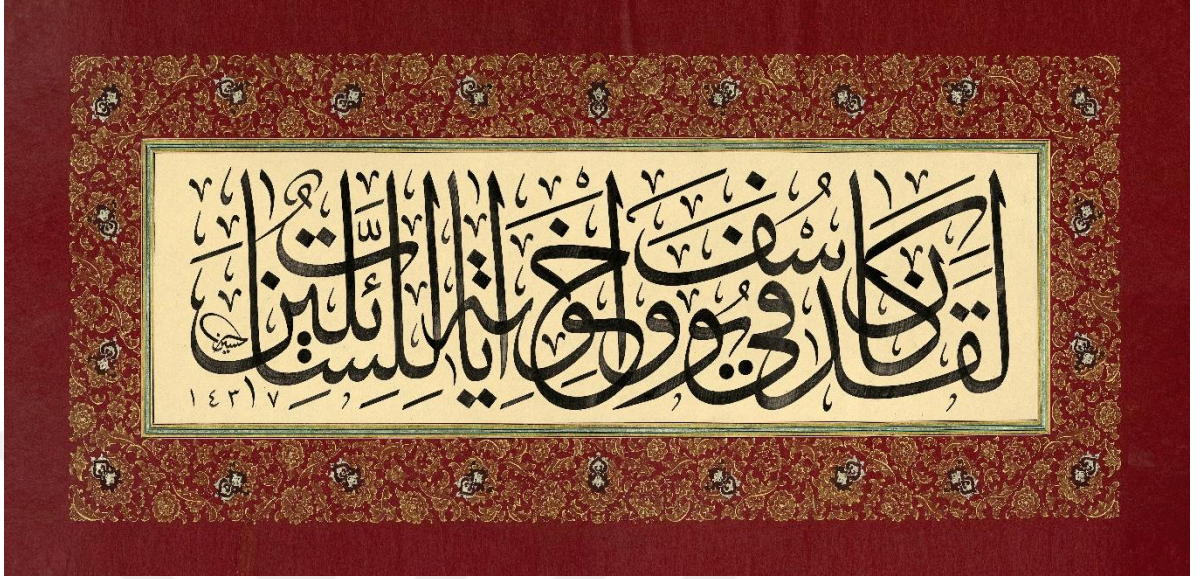 لقد كان في يوسف وإخوته آيات للسائلين
١٤٣١